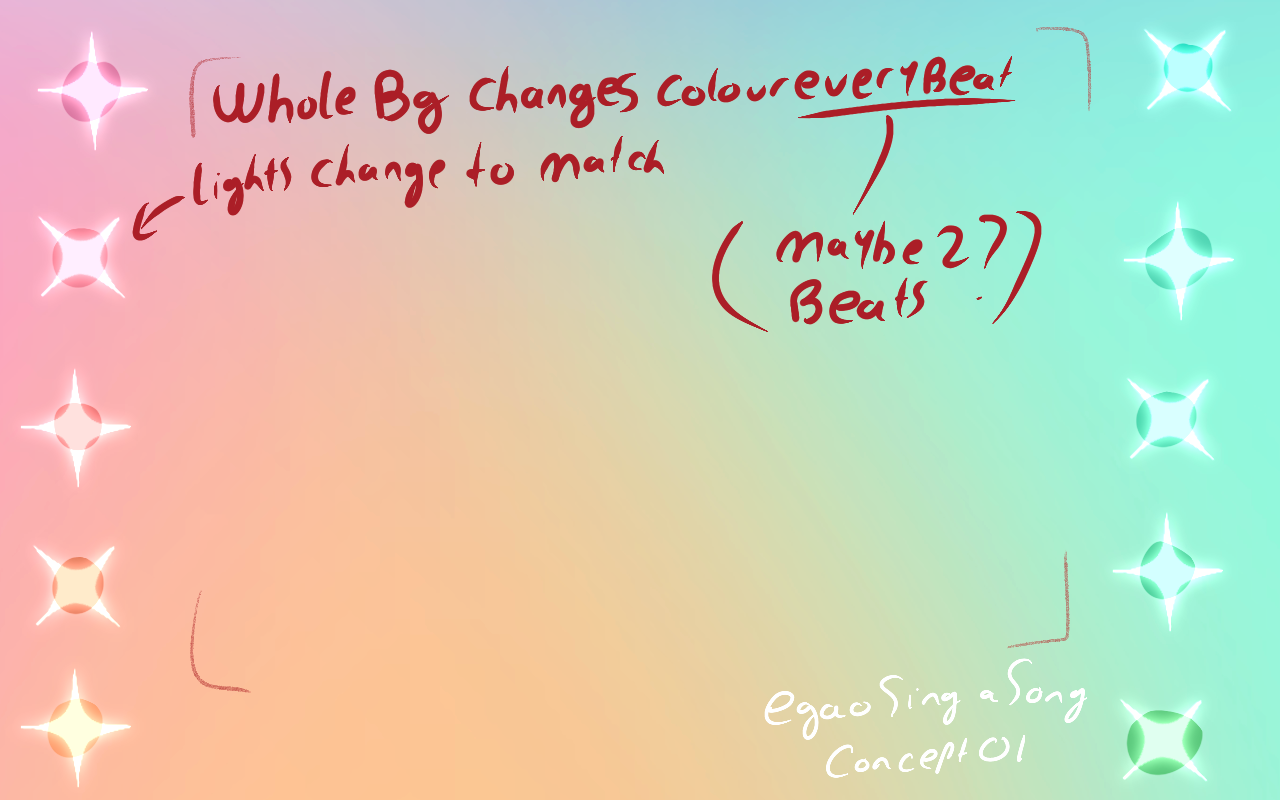 Whole Bg changes colour every Beat
lights change to match
(maybe 2?)
Beats
egao Sing a Song
Concept 01